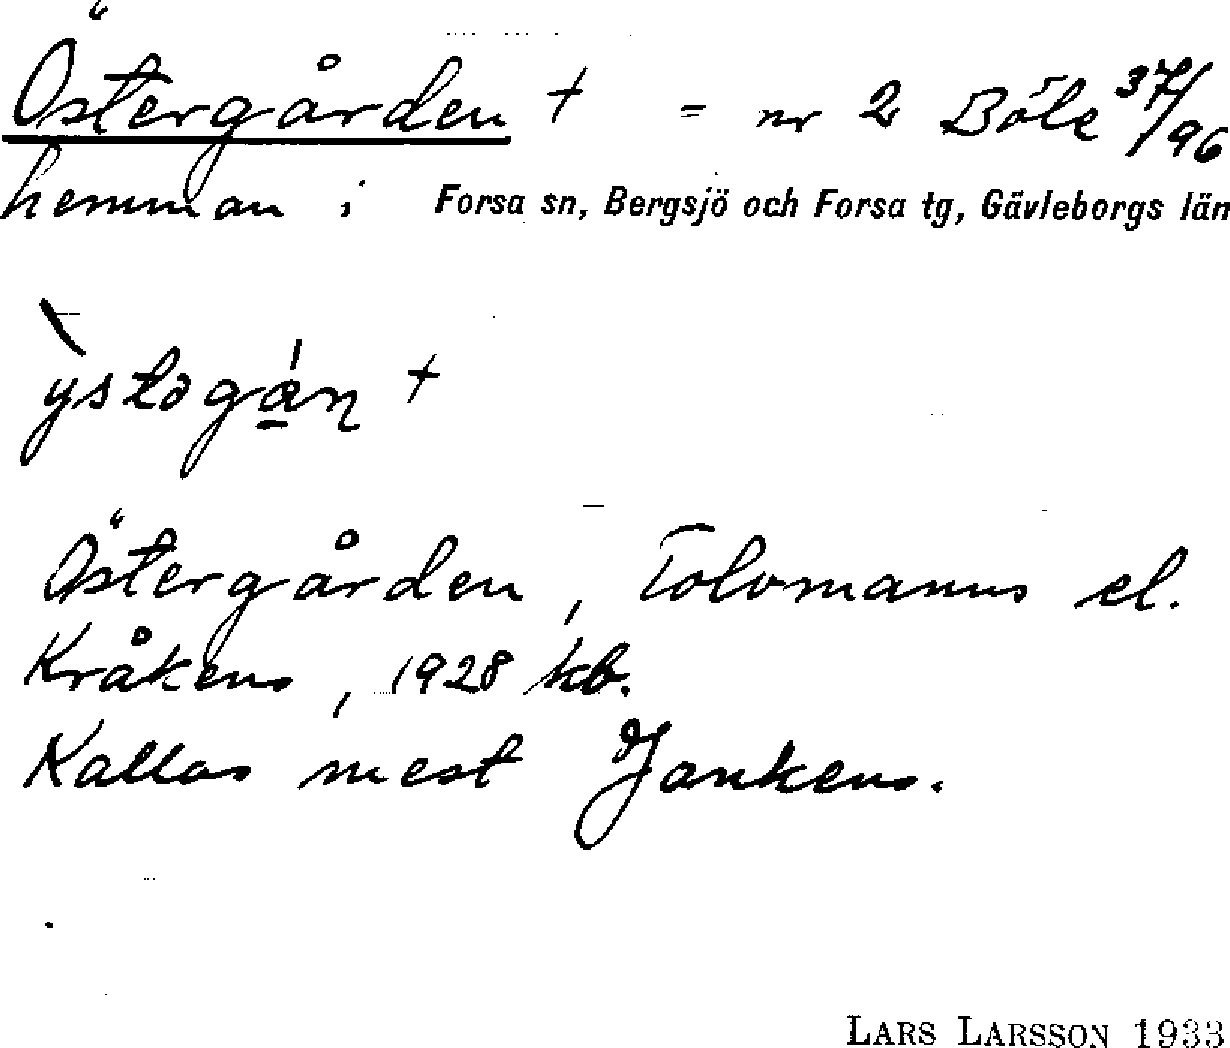 Östergården + = nr 2 Böle 37/96
hemman i Forsa sn, Bergsjö och Forsa tg, Gävleborgs län
̀ystəgá̱ɳ +
Östergården, Tolvmanns el.
Kråkens, 1928 kb.
Kallas mest Jankens.
LARS LARSSON 1933